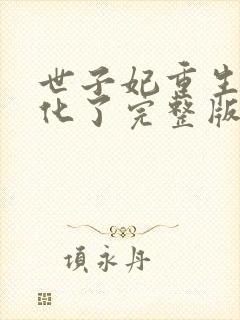 世子妃重生
化了完整版
項永丹